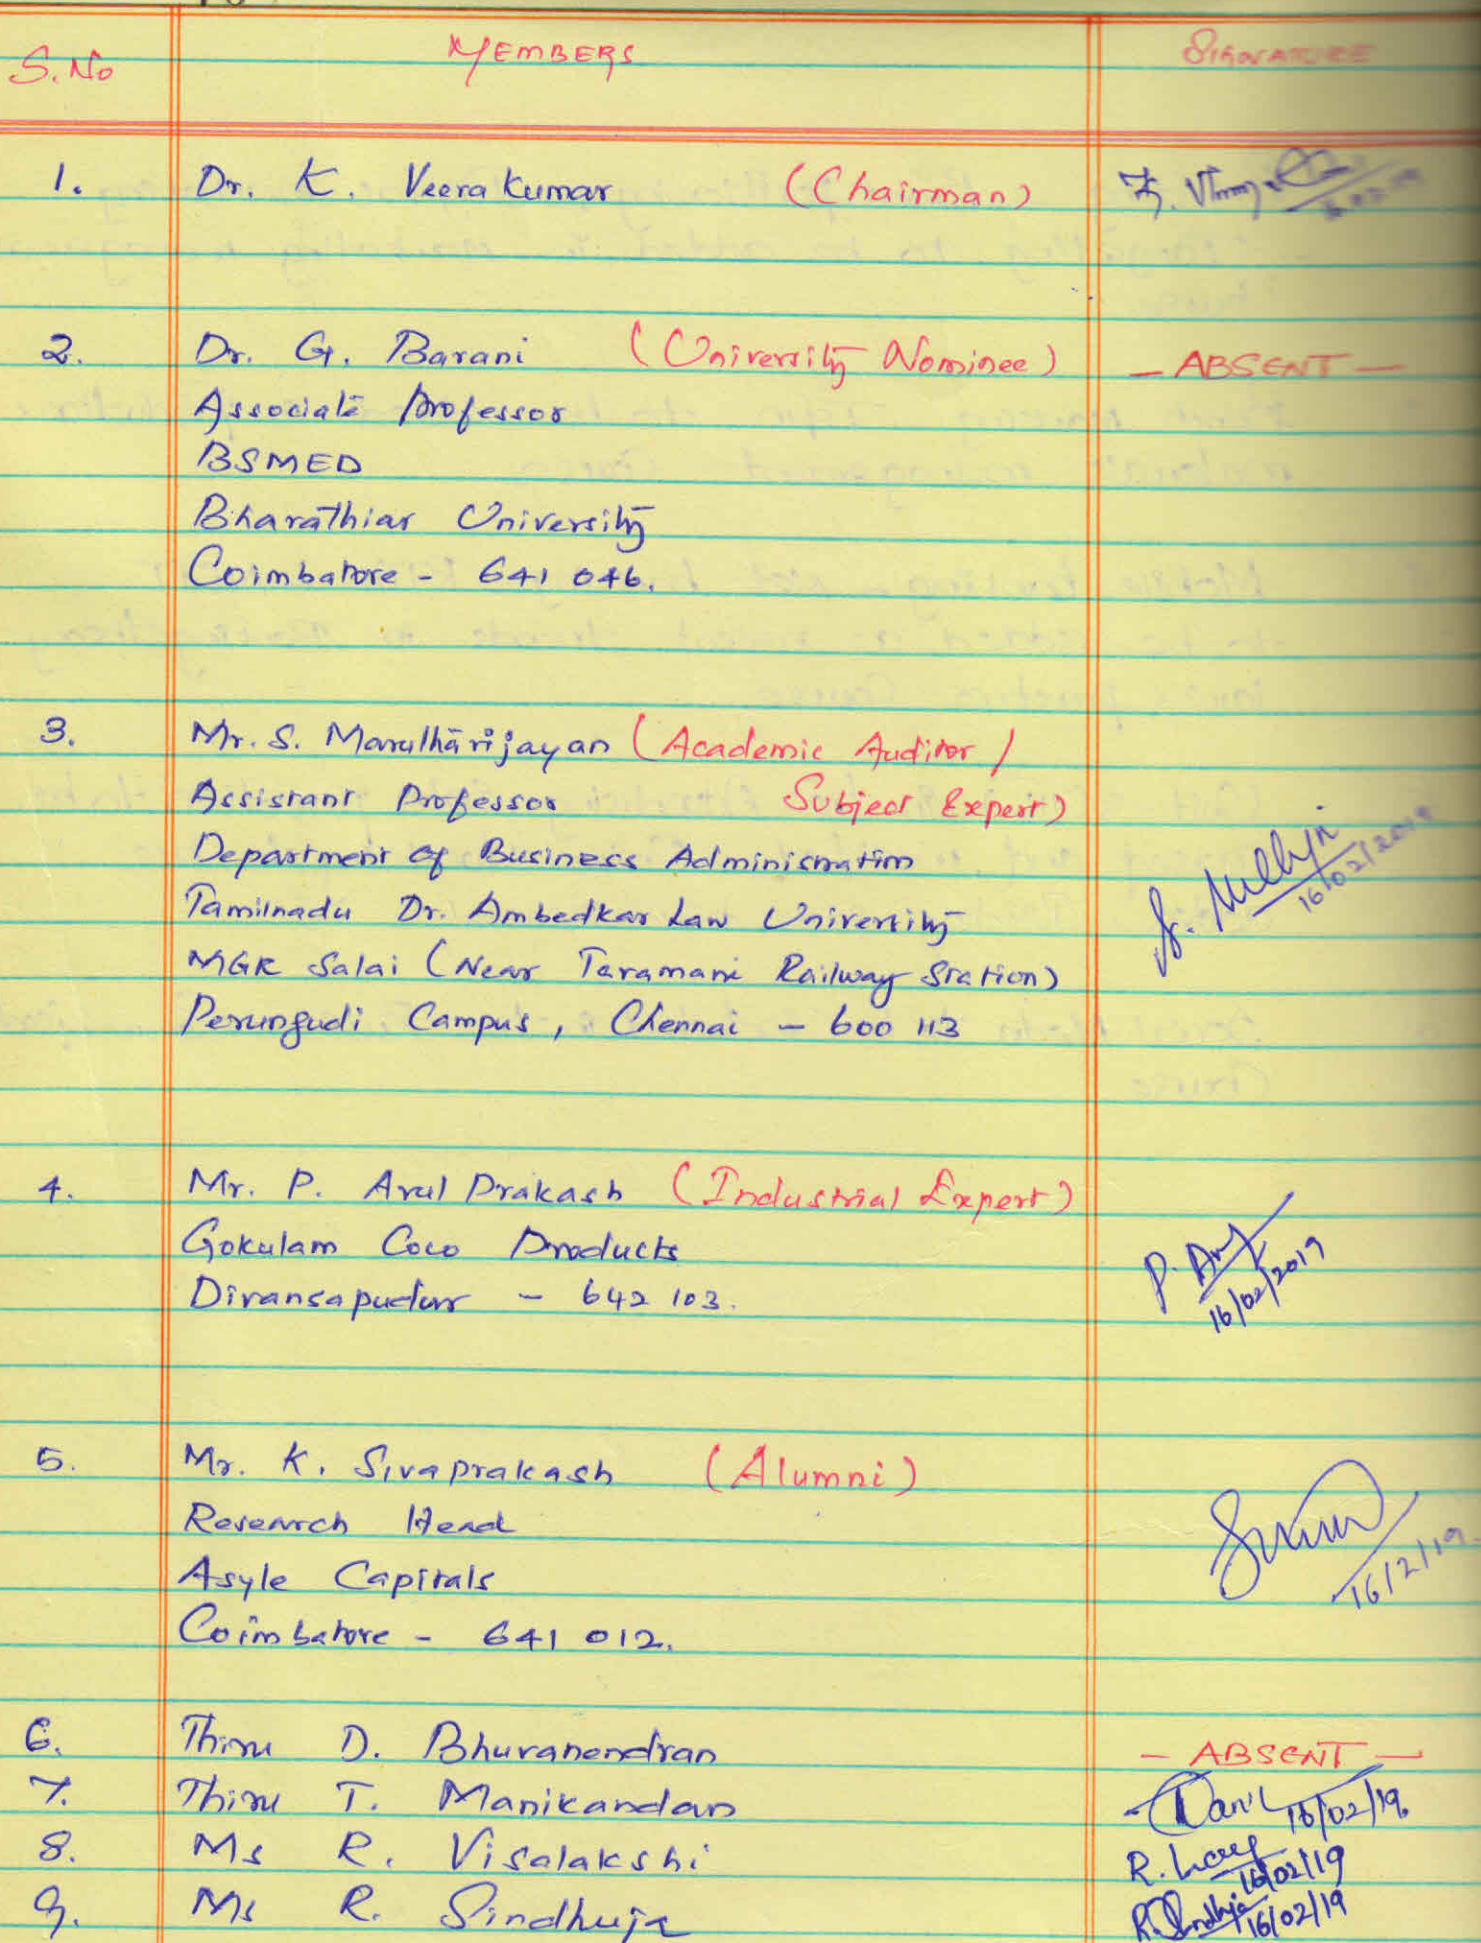 S.No MEMBERS SIGNATURE
1. Dr. K. Veerakumar (Chairman)
2. Dr. G. Barani (University Nominee) - ABSENT -
Associate Professor
BSMED
Bharathiar University
Coimbatore - 641 046.
3. Mr. S. Marutharijayan (Academic Auditor /
Assistant Professor Subject Expert)
Department of Business Administration
Tamilnadu Dr. Ambedkar Law University 16/02/2019
MGR Salai (Near Taramani Railway Station)
Perungudi Campus, Chennai - 600 113
4. Mr. P. Arul Prakash (Industrial Expert)
Gokulam Coco Products P.
Divansapudur - 642 103. 16/02/2019
5. Mr. K. Sivaprakash (Alumni)
Research Head
Asyle Capitals 16/2/19
Coimbatore - 641 012.
6. Thiru D. Bhuvanendran - ABSENT -
7. Thiru T. Manikandan 16/02/19
8. Ms R. Visalakshi R. 16/02/19
9. Ms R. Sindhuja R. Sindhuja 16/02/19